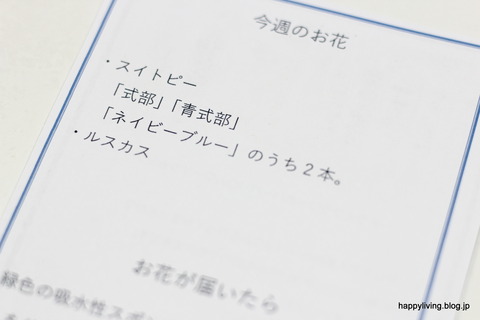 今週のお花
・スイトピー
「式部」「青式部」
「ネイビーブルー」のうち2本。
・ルスカス
お花が届いたら
緑色の吸水性スポン
happyliving.blog.jp